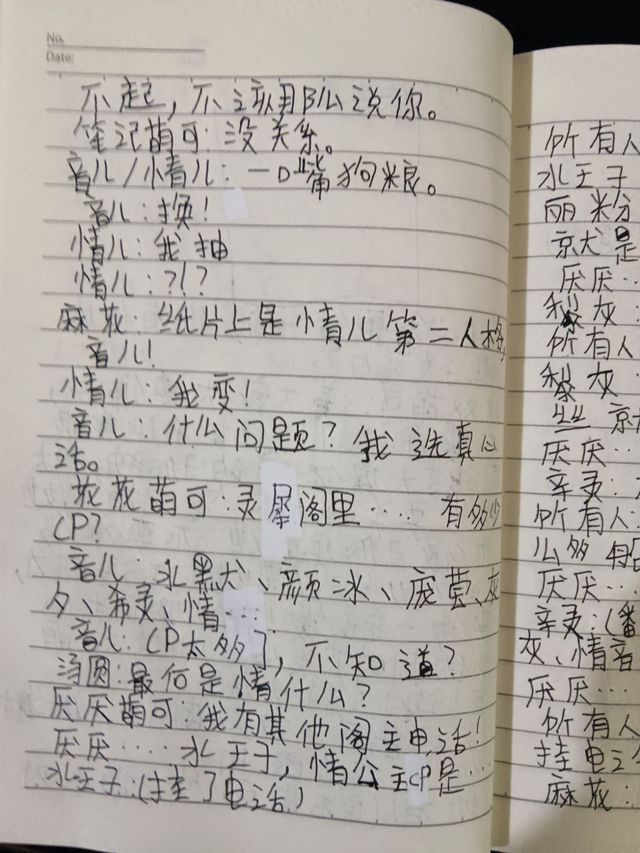 No.
Date:
不起，不该用那么说你。
笔记萌可：没关系。
音儿/情儿：一口嘴狗粮。
音儿：换！
情儿：我抽
情儿：？！？
麻花：纸片上是情儿第二人格
音儿！
情儿：我变！
音儿：什么问题？我选真心
话。
花花萌可：灵犀阁里····有多少
CP？
音儿：水黑犬、颜冰、庞莹、灰
夕、希灵、情···
音儿：CP太多了，不知道？
汤圆：最何是情什么？
厌厌萌可：我有其他阁主电话！
厌厌·····水王子，情公主CP是···
水王子：(挂了电话)
所有人
水王子
丽粉
京犬是
厌厌···
黎灰：
所有人
黎灰：
丝丝京
厌厌···
辛灵：
所有人：
么多
厌厌···
辛灵：(番
灰、情音
厌厌···
所有人
挂电话
麻花：